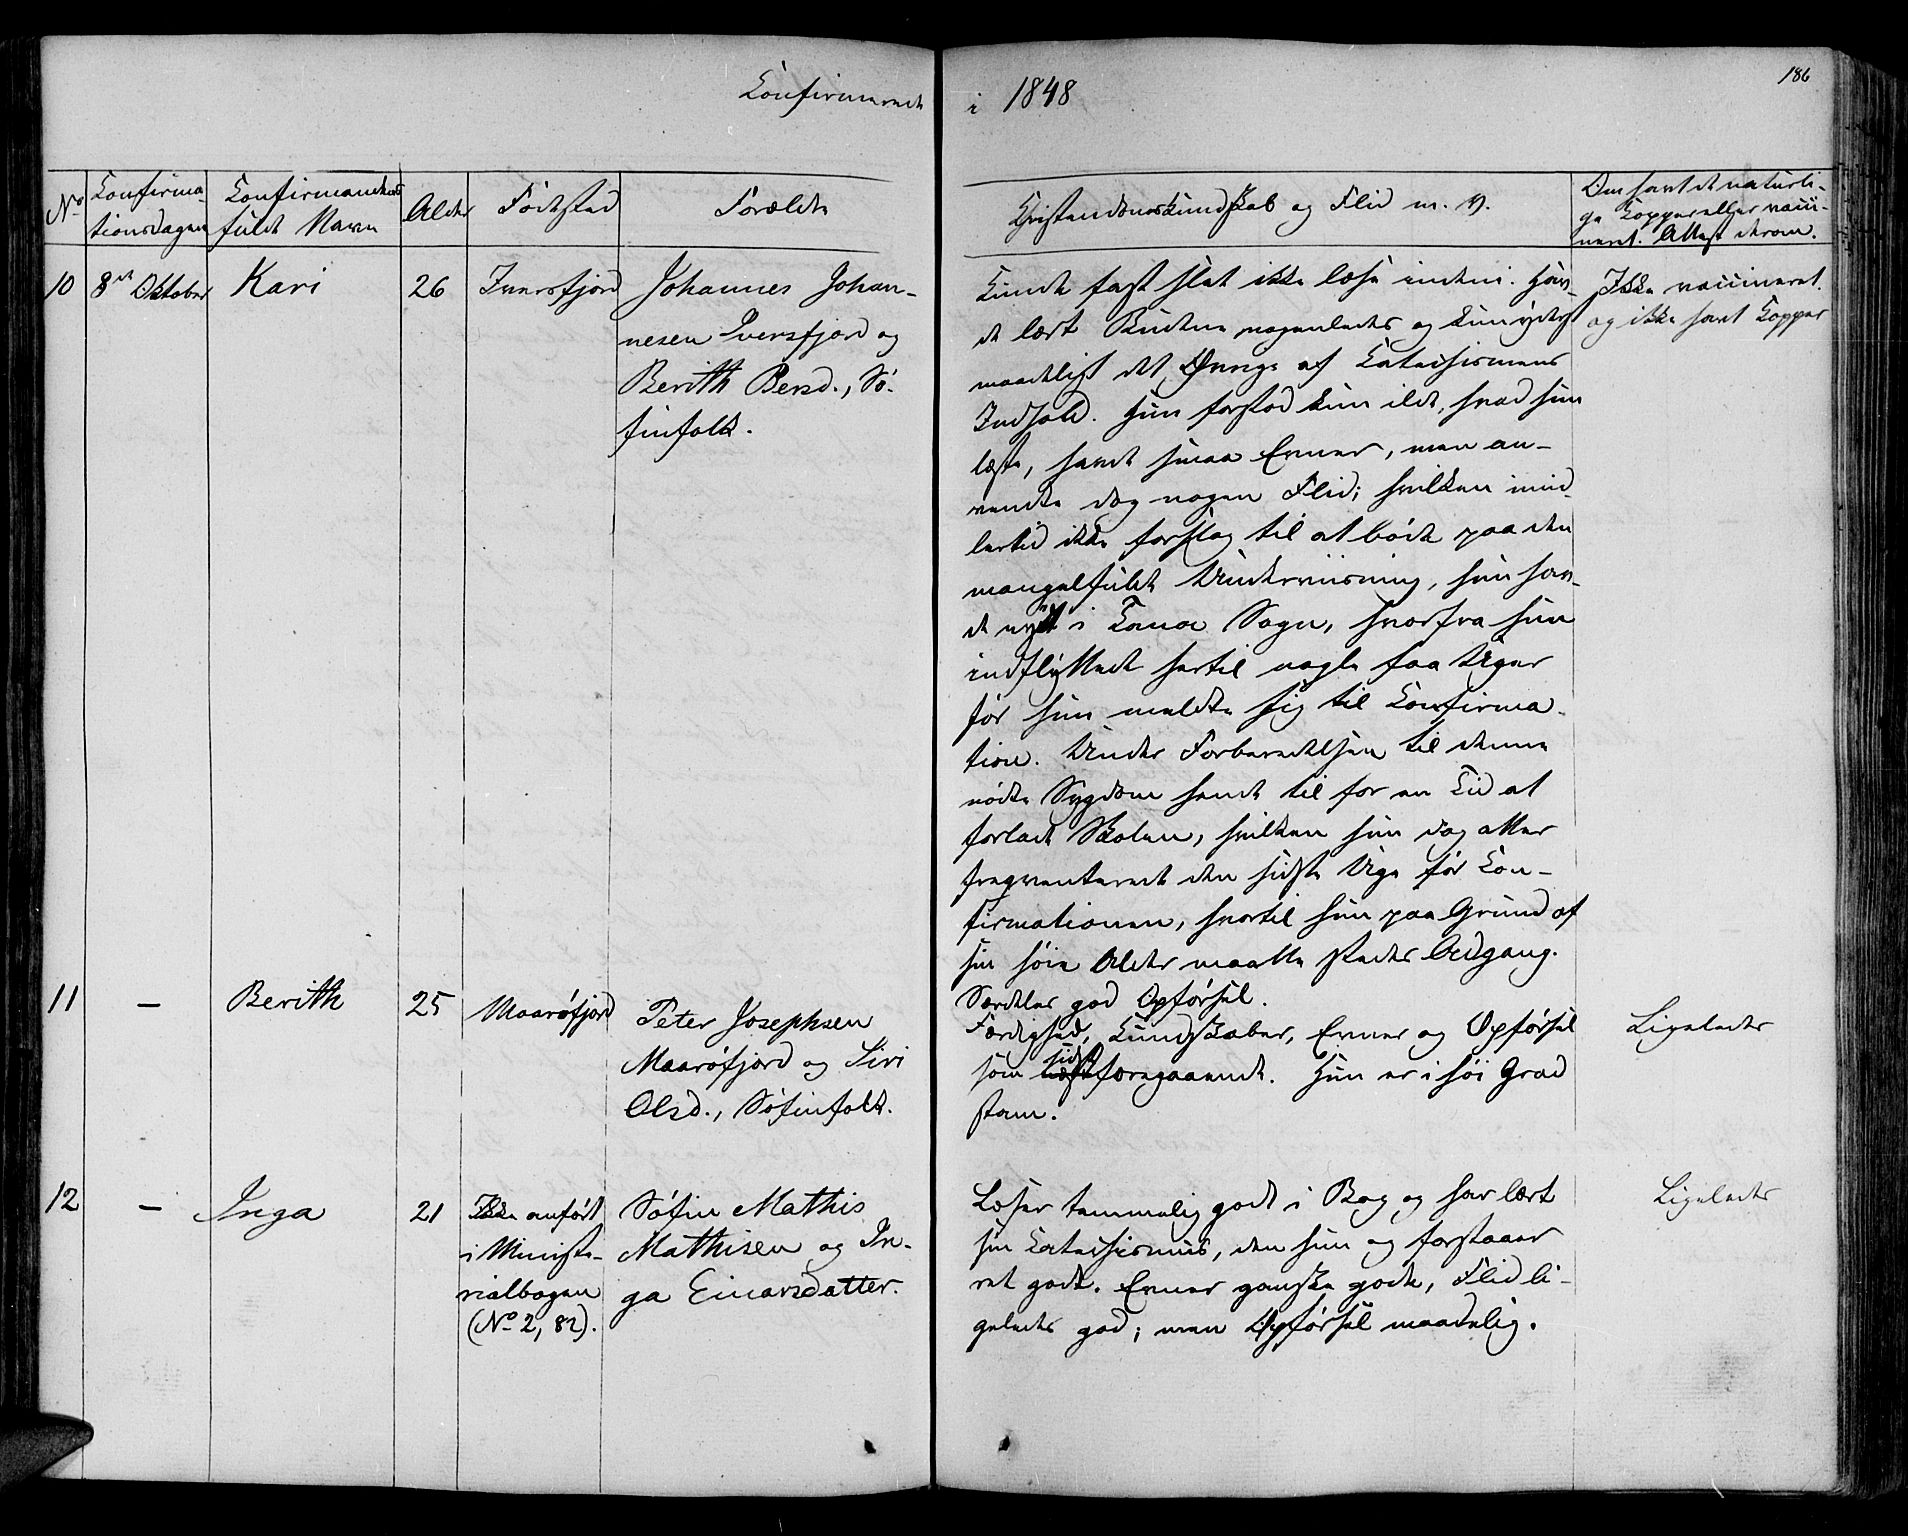 Confirmerede
i 1848
186
No
Confirma-
tionsdagen
Confirmandens
fulde Navn
Alder
Födested
Forældre
Christendomskundskab og Flid m. v.
Om havt de naturli-
ge Kopper eller vacci-
neret. Attest derom.
10
8de Oktober
Kari
26
Iversfjord
Johannes Johan-
nesen Iversfjord og
Berith Persd., Sö-
finfolk.
Kunde fast slet ikke læse indeni. Hav-
de lært Budene nogenledes og kun yderst
maadeligt det Övrige af Catechismens
Indhold. Hun forstod kun ilde, hvad hun
læste, havde smaa Evner, men an-
vendte dog nogen Flid; hvilken imid-
lertid ikke forslog til at böde paa den
mangelfulde Underviisning, hun hav-
de nydt i Tana Sogn, hvorfra hun
indflyttede hertil nogle faa Uger
för hun meldte sig til Confirma-
tion. Under Forberedelsen til denne
nödte Sygdom hende til for en Tid at
forlade Skolen, hvilken hun dog atter
freqventerede den sidste Uge för Con-
firmationen, hvortil hun paa Grund af
sin höie Alder maatte stedes Adgang.
Særdeles god Opförsel.
Ikke vaccineret
og ikke havt Kopper
11
–
Berith
25
Maaröfjord
Peter Josephsen
Maaröfjord og Siri
Olsd., Söfinfolk.
Færdighed, Kundskaber, Evner og Opförsel
som sidst foregaaende. Hun er i höi Grad
stam.
Ligeledes
12
–
Inga
21
Ikke anfört
i Ministe-
rialbogen
(No 2, 82).
Söfin Mathis
Mathisen og In-
ga Einarsdatter.
Læser temmelig godt i Bog og har lært
sin Catechismus, den hun og forstaaer
ret godt. Evner ganske gode, Flid li-
geledes god; men Opförsel maadelig.
Ligeledes